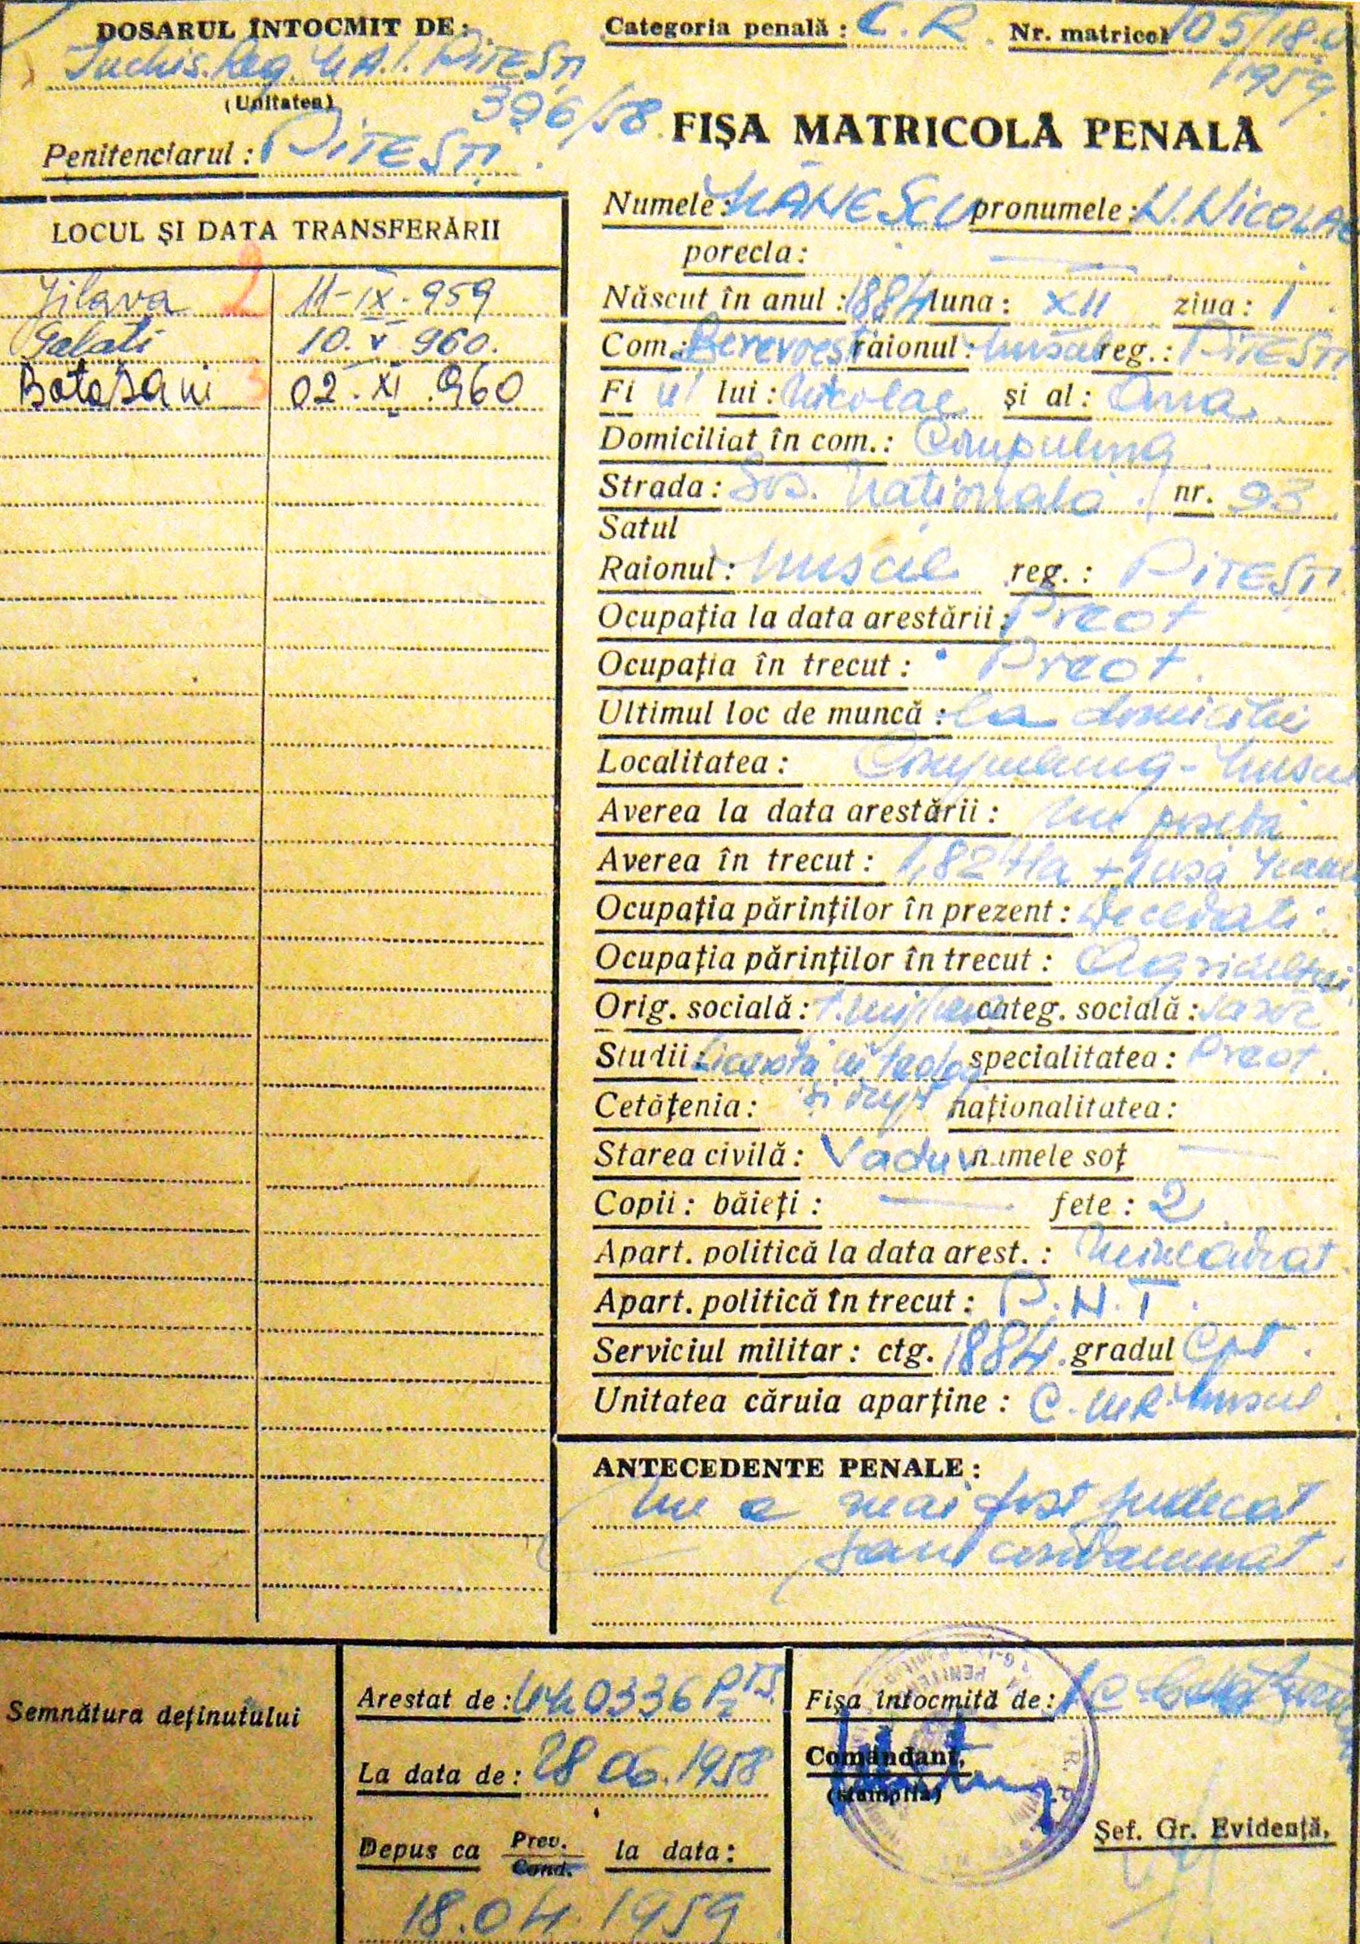 DOSARUL ÎNTOCMIT DE:
Inchis. Reg. M.A.I. PITEȘTI
(Unitatea) 396/58
Penitenciarul: PITEȘTI.
Categoria penală: C.R. Nr. matricol 105/18.
1959.
FIȘA MATRICOLĂ PENALĂ
LOCUL ȘI DATA TRANSFERĂRII
Jilava 2 11-IX-959
Galati 10.V.960.
Botoșani 3 02.XI.960
Numele: MĂNESCU pronumele: N. NICOLAE
porecla: —
Născut în anul: 1884 luna: XII ziua: 1.
Com.: Berevoești raionul: Muscel reg.: PITEȘTI
Fi ul lui: Nicolae și al: Ana.
Domiciliat în com.: Câmpulung
Strada: Șos. Națională nr. 93
Satul
Raionul: Muscel reg.: PITEȘTI
Ocupația la data arestării: Preot
Ocupația în trecut: Preot.
Ultimul loc de muncă: La domiciliu
Localitatea: Câmpulung-Muscel
Averea la data arestării: Nu posedă
Averea în trecut: 1,82 Ha +
Ocupația părinților în prezent: Decedați.
Ocupația părinților în trecut: Agricultori
Orig. socială: categ. socială:
Studii: Licență în teologie specialitatea: Preot.
și drept
Cetățenia: naționalitatea:
Starea civilă: Văduv numele soț —
Copii: băieți: — fete: 2
Apart. politică la data arest.: Neîncadrat.
Apart. politică în trecut: P.N.T.
Serviciul militar: ctg. 1884. gradul Cpt.
Unitatea căruia aparține: C.M.R. Muscel.
ANTECEDENTE PENALE:
Nu a mai fost judecat
sau condamnat.
Semnătura deținutului
Arestat de: UM 0336
La data de: 28 06.1958
Depus ca Prev. Cond. la data:
18.04.1959
Fișa întocmită de:
Comandant,
(ștampila)
Șef. Gr. Evidență,